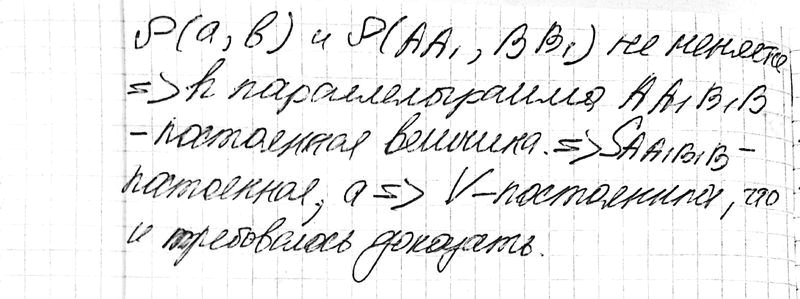 ρ(a, b) и ρ(AA₁, BB₁) не меняется
=> h параллелограмма AA₁B₁B
- постоянная величина. => S_{AA₁B₁B} -
постоянная, а => V - постоянный, что
и требовалось доказать.